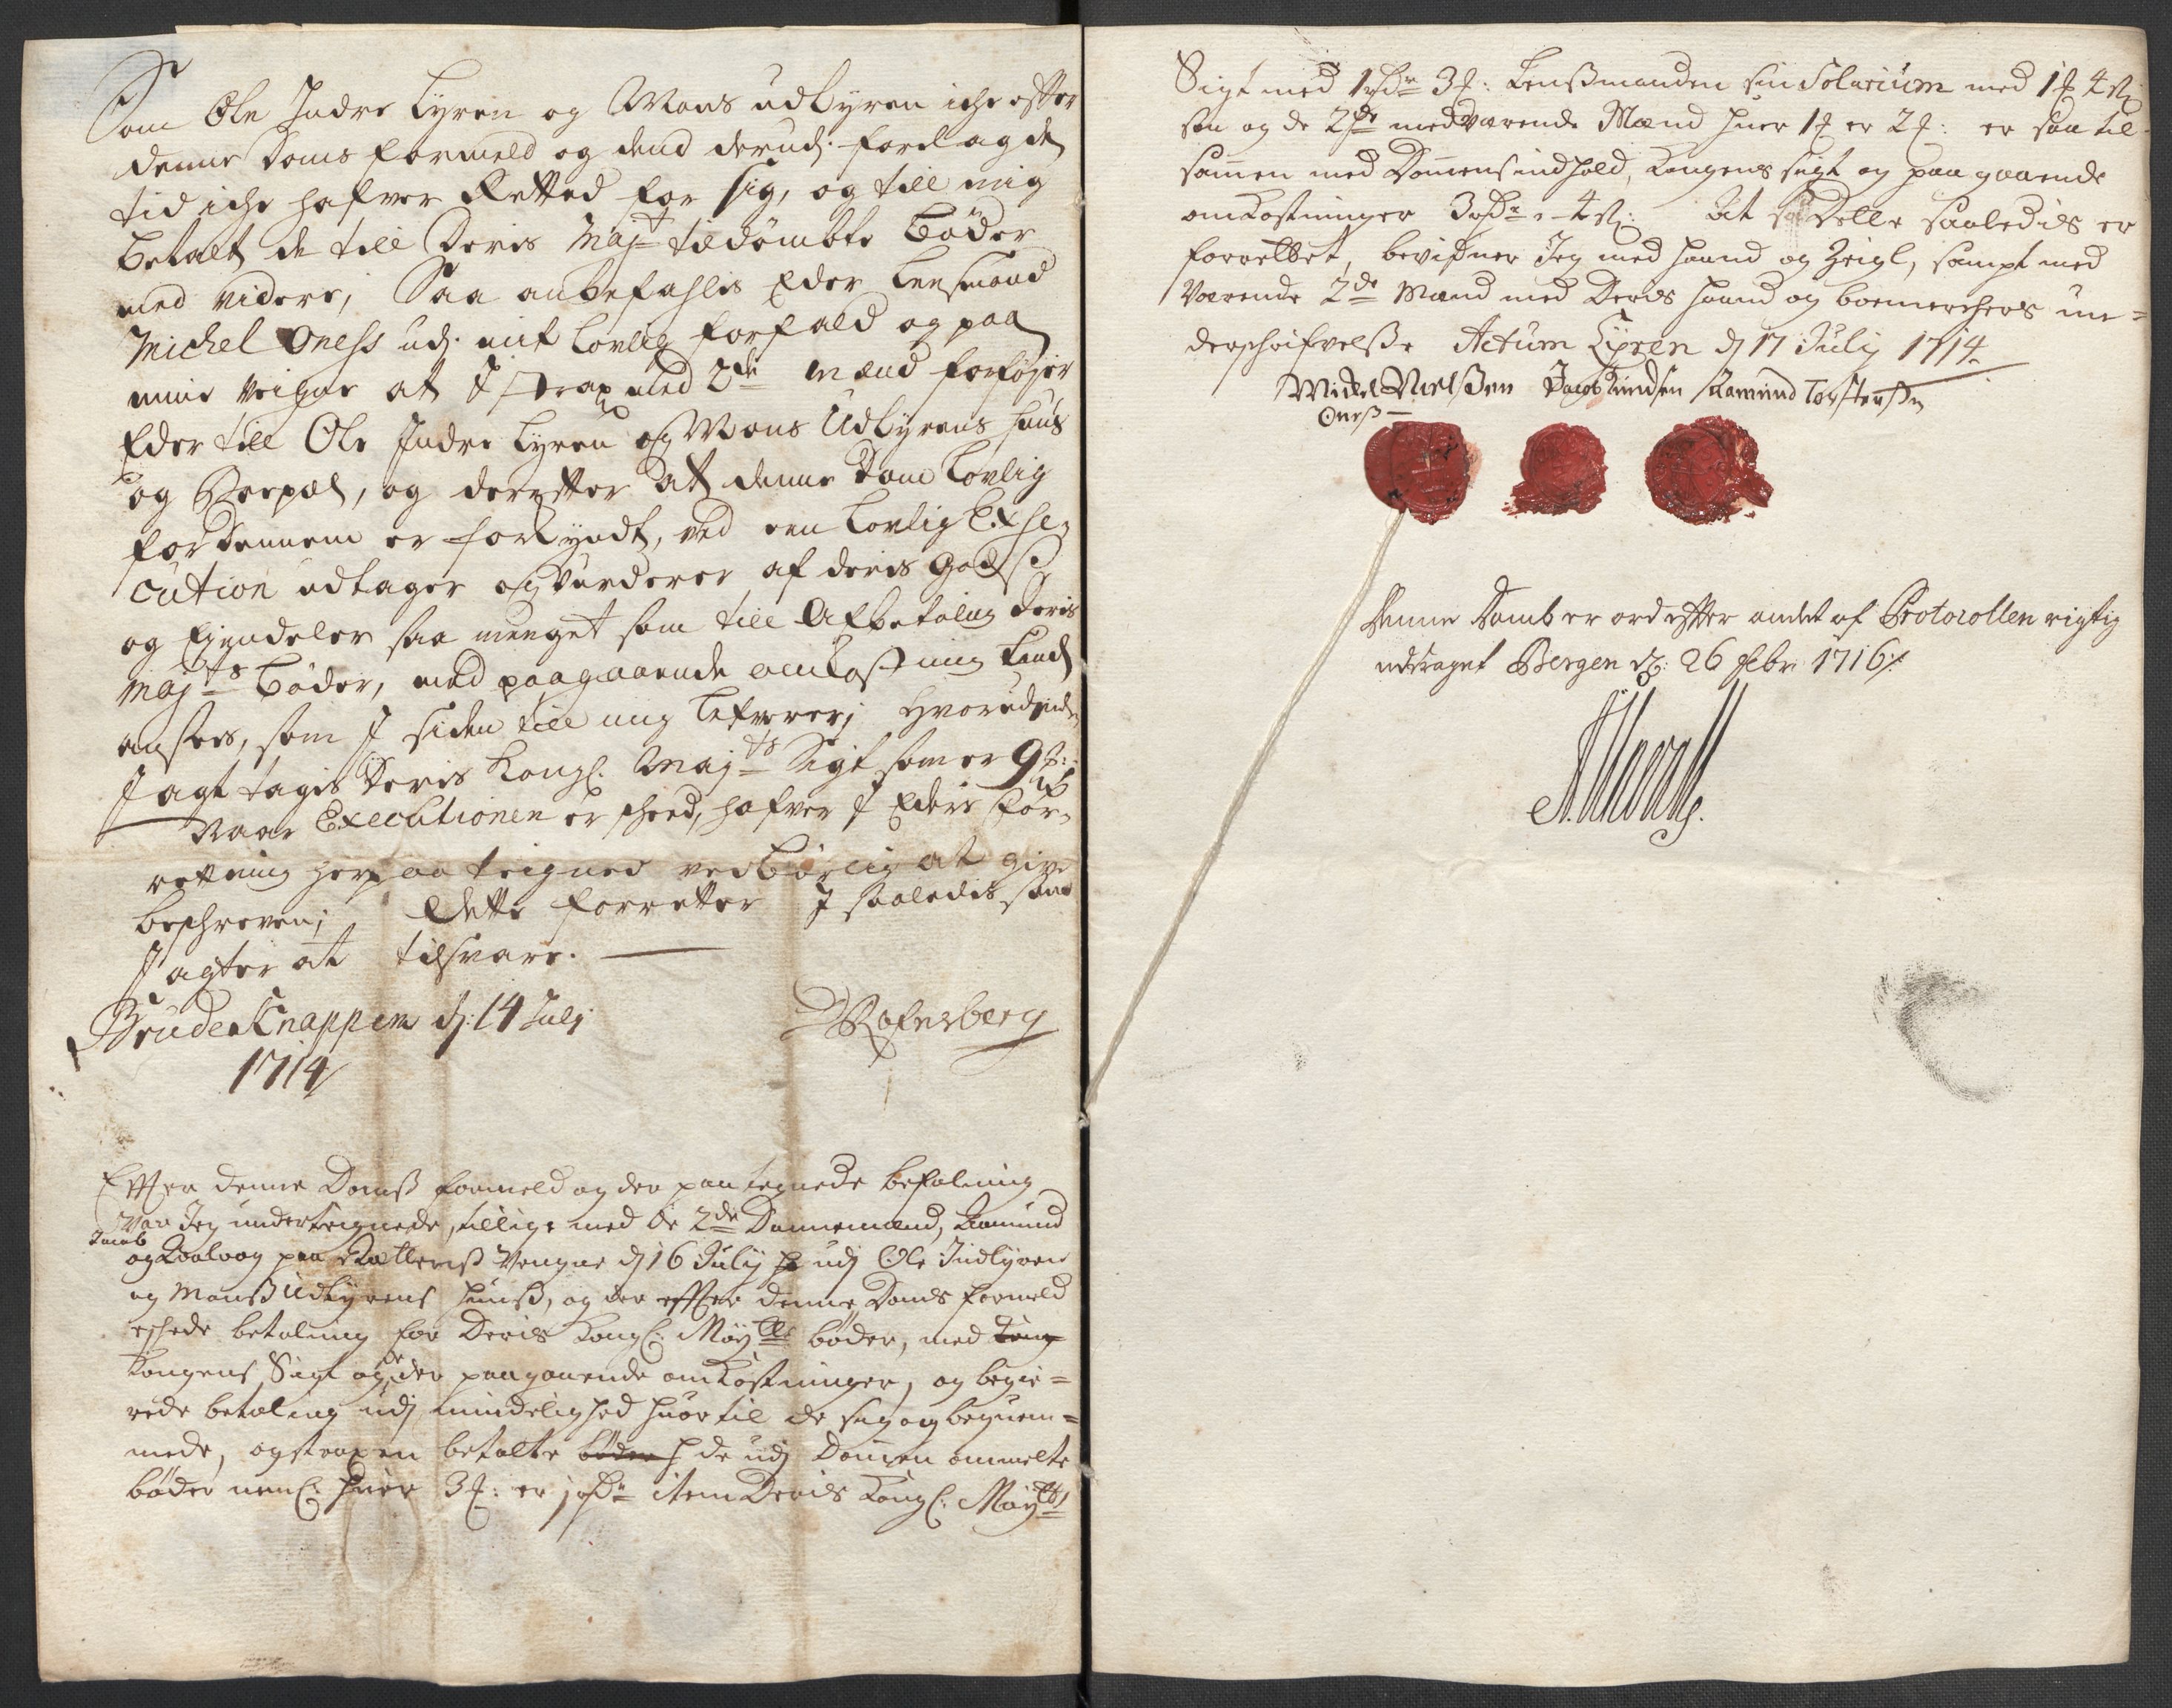 Som Ole Indre Lyren og Mons udLyren iche efter
denne Doms formeld og dend derudj. forelagde
tid iche hafver Retted for sig, og till mig
betalt de till Deris Majt tildømbte Bøder
med videre, Saa anbefahlis Eder Lensmand
Michel Oness udj. mit lovlig forfald og paa
mine veigne at I strax med 2de Mænd forføjer
Eder till Ole Indre Lyren og Mons Udlyrens huus
og Boepæl, og derefter at denne Dom Lovlig
for dennem er forkyndt, ved een Lovlig Exse,
cution udtager og vurderer af deris gods
og Eyendeler saa meuget som till Afbetaling Deris
Majts Bøder, med paagaaende omkostning kand
ansees, som I siden till mig lefverer; Hvorudinden
I agt tagis Deris Kongl. Majts Sigt som er 9
Naar Executionen er scheed, hafver I Eders for,
rettning herpaa teigned vedbørlig at give
beschreven; Dette forretter I saaledis som
I agter at tilsvare.
BrudeKnappen dj: 14 Julj
1714
Efter denne Domss formeld og der paa tegnede befaling
Var Jeg underteignede, tillige med de 2de Dannemænd, Aamund
Jacob
og paa vengne dj 16 July udj Ole Indlyren
og Monss Udlyrens huuss, og der efter denne Doms formeld
eschede betaling for Deris Kongl: Mayts bøder, med
Kongens Sigt og de der paagaaende omkostninger, og begie=
rede betaling udj mindelighed huor til de sig og beqvem=
mede, og strax en betalte de udj Domen ommelte
bøder neml: huer 3 : er 1 rdr item Deris Kongl: Mayts
Sigt med 1 rdr 3 : Lenssmanden sin Solarium med 1 4
saa og de 2de medværende Mænd huer 1 er 2 : er saa til
samen med Domens indhold, Kongens sigt og paa gaaende
omkostninger 3 rdr - 4 : At saadelle saaledis er
forrettet, bevisner Jeg med haand og Zeigl, sampt med
værende 2de Mænd med Deris haand og boemerchers un=
derschrifvelsse Actum Lyren dj 17 July 1714
Mickel Nielssen Jacob Knudsen Aamund Torstenssn
Oness
Denne Domb er ord efter andet af Protocollen rigtig
uddraget Bergen d: 26 Febr: 1716